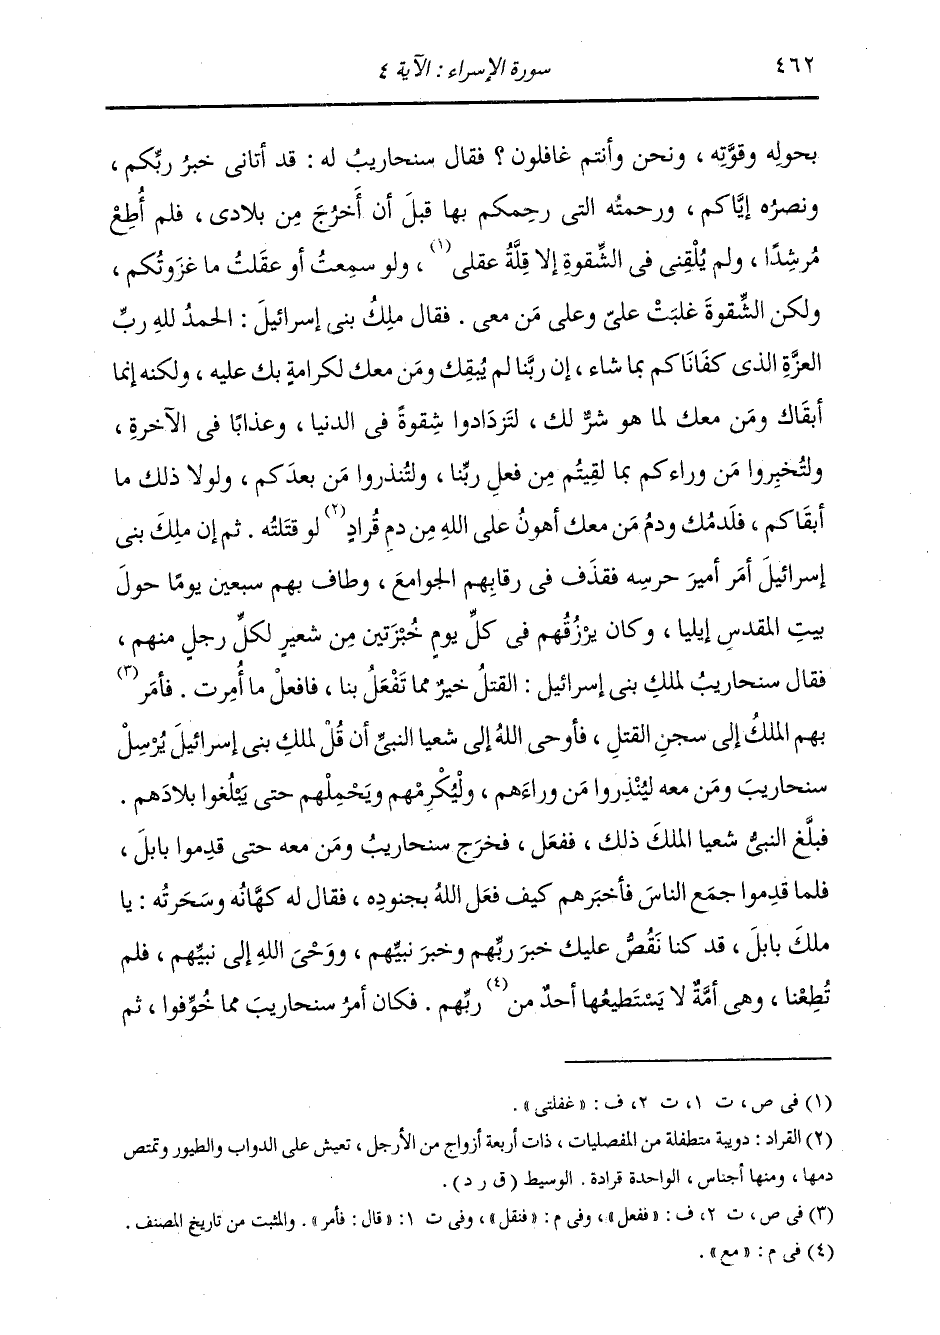 ٤٦٢
سورة الإسراء : الآية ٤
بحولِه وقوَّتِه ، ونحن وأنتم غافلون ؟ فقال سنحاريبُ له : قد أتانى خبرُ ربِّكم ،
ونصرُه إيَّاكم ، ورحمتُه التى رحِمكم بها قبلَ أن أَخرُجَ مِن بلادى ، فلم أُطِعْ
مُرشِدًا ، ولم يُلْقِنى فى الشِّقوةِ إلا قِلَّةُ عقلى(١) ، ولو سمِعتُ أو عقَلتُ ما غزَوتُكم ،
ولكن الشِّقوةَ غلبَتْ علىّ وعلى مَن معى . فقال ملِكُ بنى إسرائيلَ : الحمدُ للهِ ربِّ
العزَّةِ الذى كفَانَاكم بما شاء ، إن ربَّنا لم يُبقِك ومَن معك لكرامةٍ بك عليه ، ولكنه إنما
أبقَاك ومَن معك لما هو شرٌّ لك ، لتَزدَادوا شِقوةً فى الدنيا ، وعذابًا فى الآخرةِ ،
ولتُخبِروا مَن وراءكم بما لقِيتُم مِن فعلِ ربِّنا ، ولتُنذروا مَن بعدَكم ، ولولا ذلك ما
أبقَاكم ، فلَدمُك ودمُ مَن معك أهونُ على اللهِ مِن دمِ قُرادٍ(٢) لو قتَلتُه . ثم إن ملِكَ بنى
إسرائيلَ أمَر أميرَ حرسِه فقذَف فى رقابِهم الجوامعَ ، وطاف بهم سبعين يومًا حولَ
بيتِ المقدسِ إيليا ، وكان يرْزُقُهم فى كلِّ يومٍ خُبْزَتين مِن شعيرٍ لكلِّ رجلٍ منهم ،
فقال سنحاريبُ لملكِ بنى إسرائيل : القتلُ خيرٌ مما تَفْعَلُ بنا ، فافعلْ ما أُمِرت . فأمَر(٣)
بهم الملكُ إلى سجنِ القتلِ ، فأوحى اللهُ إلى شعيا النبىِّ أن قُلْ لملكِ بنى إسرائيلَ يُرْسِلْ
سنحاريبَ ومَن معه ليُنْذِروا مَن وراءَهم ، ولْيُكْرِمْهم ويَحْمِلْهم حتى يَبْلُغوا بلادَهم .
فبلَّغ النبىُّ شعيا الملكَ ذلك ، ففعَل ، فخرَج سنحاريبُ ومَن معه حتى قدِموا بابلَ ،
فلما قدِموا جمَع الناسَ فأخبَرهم كيف فعَل اللهُ بجنودِه ، فقال له كهَّانُه وسَحَرتُه : يا
ملكَ بابلَ ، قد كنا نَقُصُّ عليك خبرَ ربِّهم وخبرَ نبيِّهم ، ووَحْىَ اللهِ إلى نبيِّهم ، فلم
تُطِعْنا ، وهى أمَّةٌ لا يَسْتَطيعُها أحدٌ من(٤) ربِّهم . فكان أمرُ سنحاريبَ مما خُوِّفوا ، ثم
(١) فى ص ، ت ١ ، ت ٢ ، ف : «غفلتى» .
(٢) القراد : دويبة متطفلة من المفصليات ، ذات أربعة أزواج من الأرجل ، تعيش على الدواب والطيور وتمتص
دمها ، ومنها أجناس ، الواحدة قرادة . الوسيط (ق ر د) .
(٣) فى ص ، ت ٢ ، ف : «ففعل» ، وفى م : «فنقل» ، وفى ت ١ : «قال : فأمر» . والمثبت من تاريخ المصنف .
(٤) فى م : «مع» .